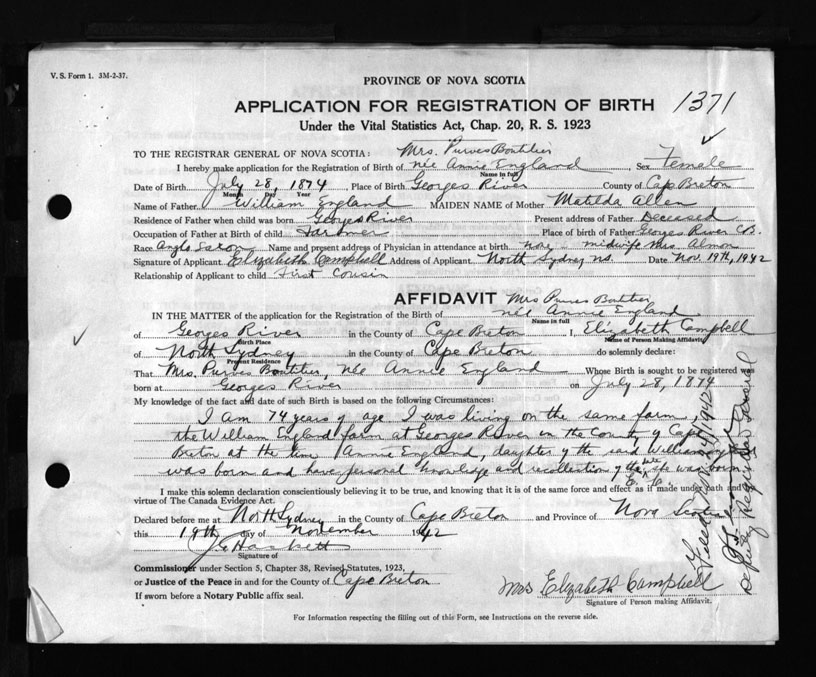 V. S. Form 1. 3M-2-37.
PROVINCE OF NOVA SCOTIA
APPLICATION FOR REGISTRATION OF BIRTH 1371
Under the Vital Statistics Act, Chap. 20, R. S. 1923
TO THE REGISTRAR GENERAL OF NOVA SCOTIA: Mrs. Purves Boutilier
I hereby make application for the Registration of Birth of née Annie England, Sex Female
Name in full
Date of Birth July 28, 1874, Place of Birth Georges River County of Cape Breton
Month Day Year
Name of Father William England MAIDEN NAME of Mother Matilda Allen
Residence of Father when child was born Georges River Present address of Father Deceased
Occupation of Father at Birth of child Farmer Place of birth of Father Georges River C.B.
Race Anglo Saxon Name and present address of Physician in attendance at birth. none - midwife Mrs. Almon
Signature of Applicant Elizabeth Campbell Address of Applicant North Sydney N.S. Date Nov. 19th, 1942
Relationship of Applicant to child First Cousin
AFFIDAVIT Mrs Purves Boutilier
IN THE MATTER of the application for the Registration of the Birth of née Annie England
Name in full
of Georges River in the County of Cape Breton I, Elizabeth Campbell
Birth Place Name of Person Making Affidavit
of North Sydney in the County of Cape Breton do solemnly declare:
Present Residence
That Mrs. Purves Boutilier, née Annie England Whose Birth is sought to be registered was
born at Georges River on July 28, 1874
My knowledge of the fact and date of such Birth is based on the following Circumstances:
I am 74 years of age I was living on the same farm,
the William England farm at Georges River in the County of Cape
Breton at the time Annie England, daughter of the said William
was born and have personal knowledge and recollection of the date she was born
E. C.
I make this solemn declaration conscientiously believing it to be true, and knowing that it is of the same force and effect as if made under oath and by
virtue of The Canada Evidence Act.
Declared before me at North Sydney in the County of Cape Breton and Province of Nova Scotia
this 19th day of November 1942
Signature of
Commissioner under Section 5, Chapter 38, Revised Statutes, 1923,
or Justice of the Peace in and for the County of Cape Breton
If sworn before a Notary Public affix seal.
Mrs Elizabeth Campbell
Signature of Person making Affidavit.
For Information respecting the filling out of this Form, see Instructions on the reverse side.
Deputy Registrar General